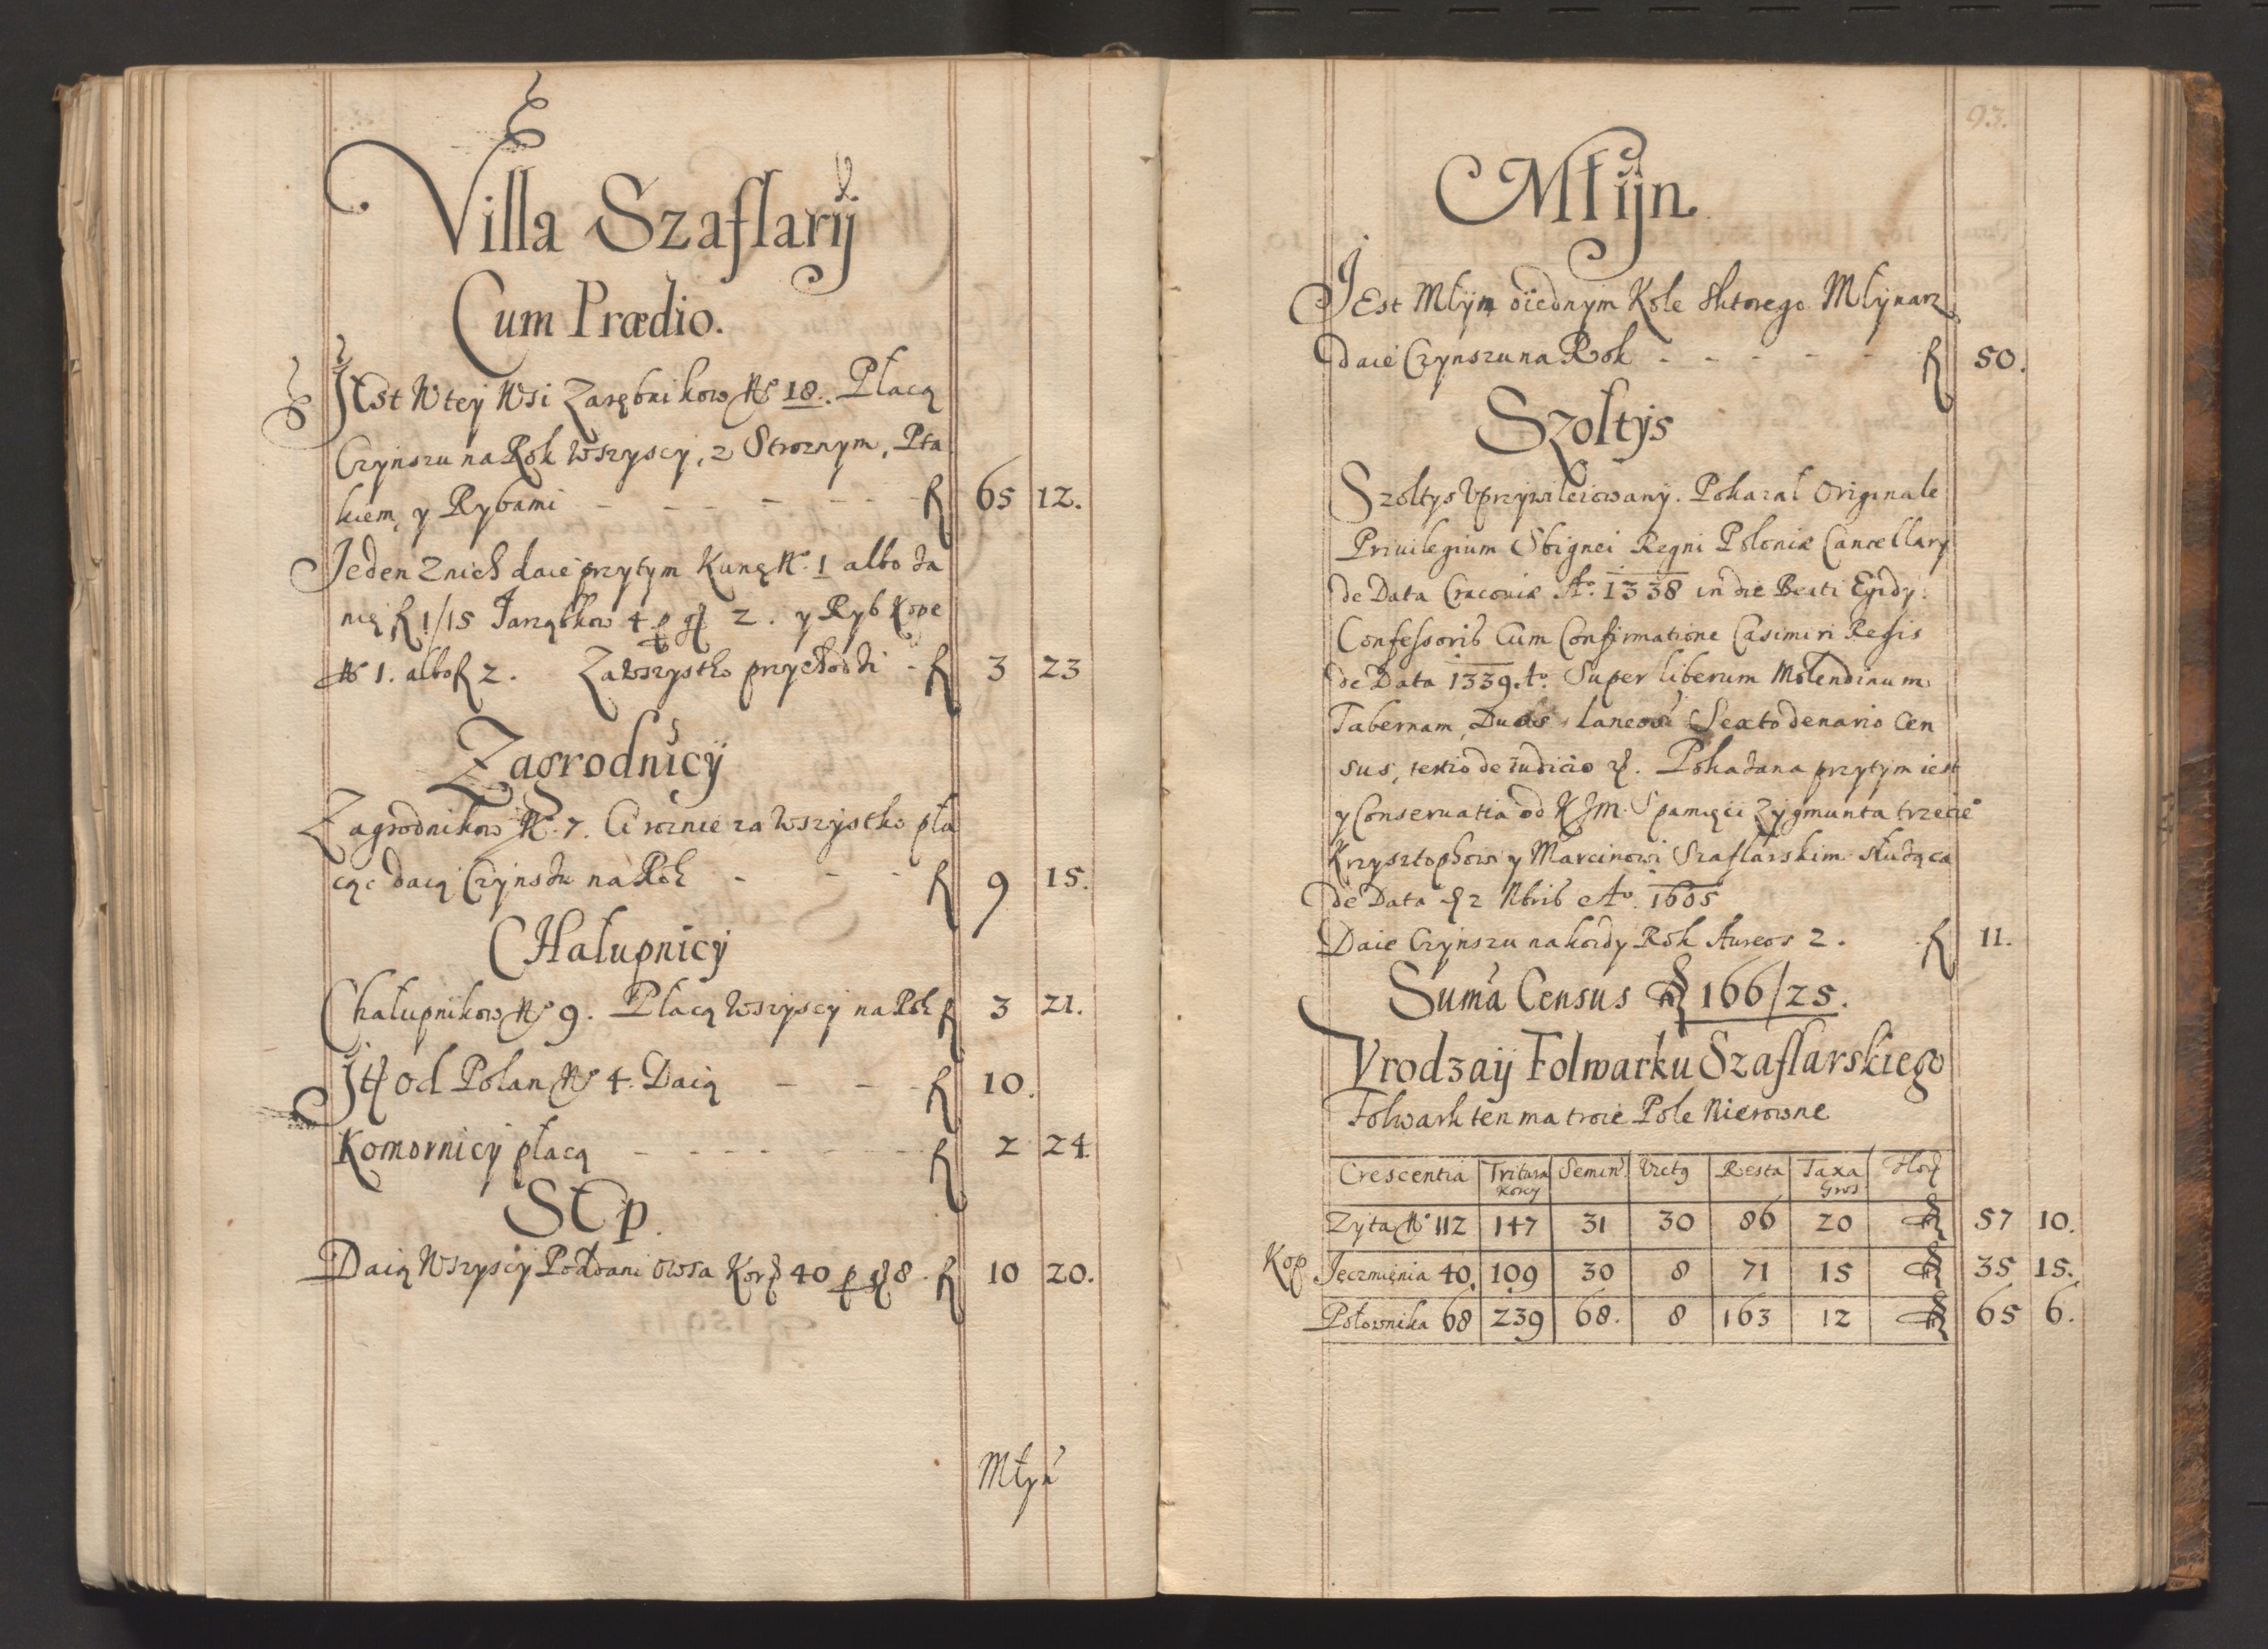 Villa Szaflarÿ
Cum Prædio.
JESt W tey Wsi Zarębnikow No 18. Płacą
Czynszu na Rok Wszyscy, z Stroznym, Pta
kiem, y Rybami - - - - - - f 65 12.
Jeden z nich daie przytym Kunę No. 1 albo za
nię f 1/15 Jarząbkow 4 p gr 2. y Ryb Kopę
No 1. albo f 2. Za wszystko przychodzi - f 3 23
Zagrodnicÿ
Zagrodnikow No. 7. Ci roznie za Wszystko pła
cąc dacą Czynszu na Rok - - - f 9 15.
CHałupnicÿ
Chałupnikow No 9. Płacą Wszyscy na Rok f 3 21.
Jtt od Polan No 4. Daią - - - f 10.
Komornicÿ płacą - - - - - - f 2 24
SEp.
Daią Wszyscÿ Poddani owsa Korcy 40 p gr 8. f 10 20.
Młyn
93.
Młÿn
JEst Młÿn o iednym Kole Sktorego Młÿnarz
daie Czynszu na Rok - - - - - f 50.
Szoltÿs
Szoltys Vprzywileiowanÿ. Pokazał Originale
Priuilegium Sbignei Regni Poloniæ Cancellarÿ
de Data Cracoviæ Ao. 1338 in die Beati Egidÿ
Confessoris Cum Confirmatione Casimiri Regis
de Data 1339. Ao. Super liberum Molendinum
Tabernam, Duos Laneos Sexto denario Cen
sus, tertio de iudicio &. Pokazana przytym iest
y Conseruatia od KJM. S pamięci Zygmunta trzecie
Krzysztophowi y Marcinowi Szaflarskim słuząca
de Data 2 Nbris Ao. 1605
Daie Czynszu na kozdy Rok Aureos 2. f 11.
Sum̃a Census f 166/25.
Vrodzaÿ Folwarku Szaflarskiego
Folwark ten ma troie Pole Nierowne
Crescentia Tritura Korcy Semin Victg Resta Taxa Gros Flor
Zyta No 112 147 31 30 86 20 f 57 10.
Kop Jęczmięnia 40. 109 30 8 71 15 f 35 15.
Połownika 68 239 68. 8 163 12 f 65 6.